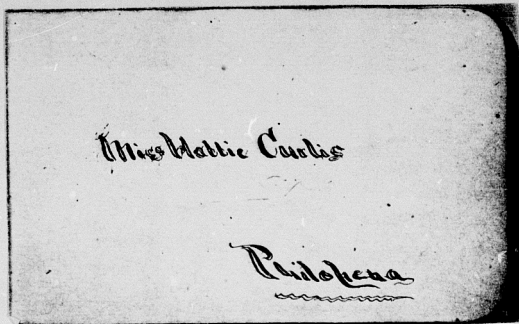 Miss Hattie Curtis
Philohena